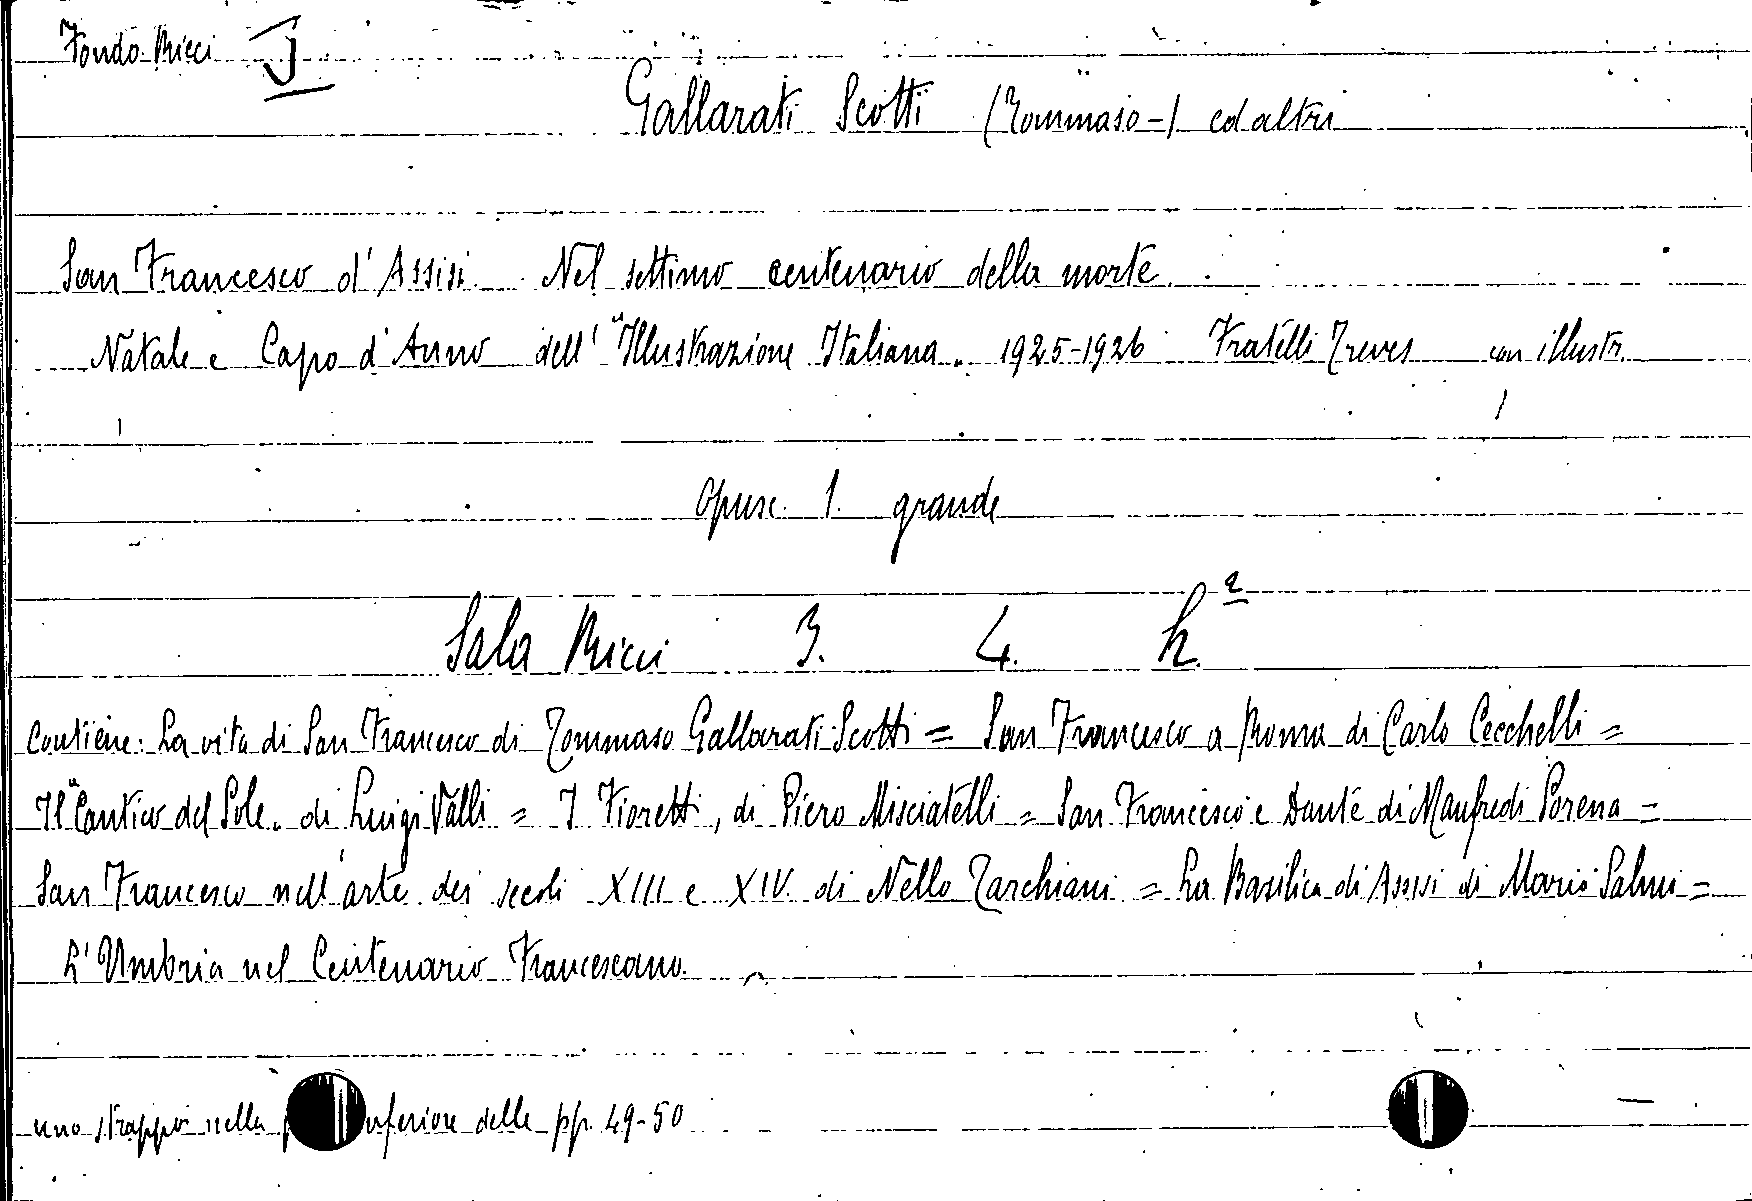 Fondo Ricci
Gallarati Scotti (Tommaso-) ed altri
San Francesco d'Assisi. Nel settimo centenario della morte.
Natale e Capo d'Anno dell' "Illustrazione Italiana" 1925-1926 Fratelli Treves con illustr.
Opusc. 1. grande
Sala Ricci 3. 4. h.2
Contiene: La vita di San Francesco di Tommaso Gallarati Scotti = San Francesco a Roma di Carlo Cecchelli =
Il "Cantico del Sole" di Luigi Valli = I Fioretti, di Piero Misciatelli = San Francesco e Dante di Manfredi Porena =
San Francesco nell'arte dei secoli XIII e XIV. di Nello Tarchiani = La Basilica di Assisi di Mario Salmi =
L'Umbria nel Centenario Francescano.
uno strappo nella inferiore delle pp. 49-50